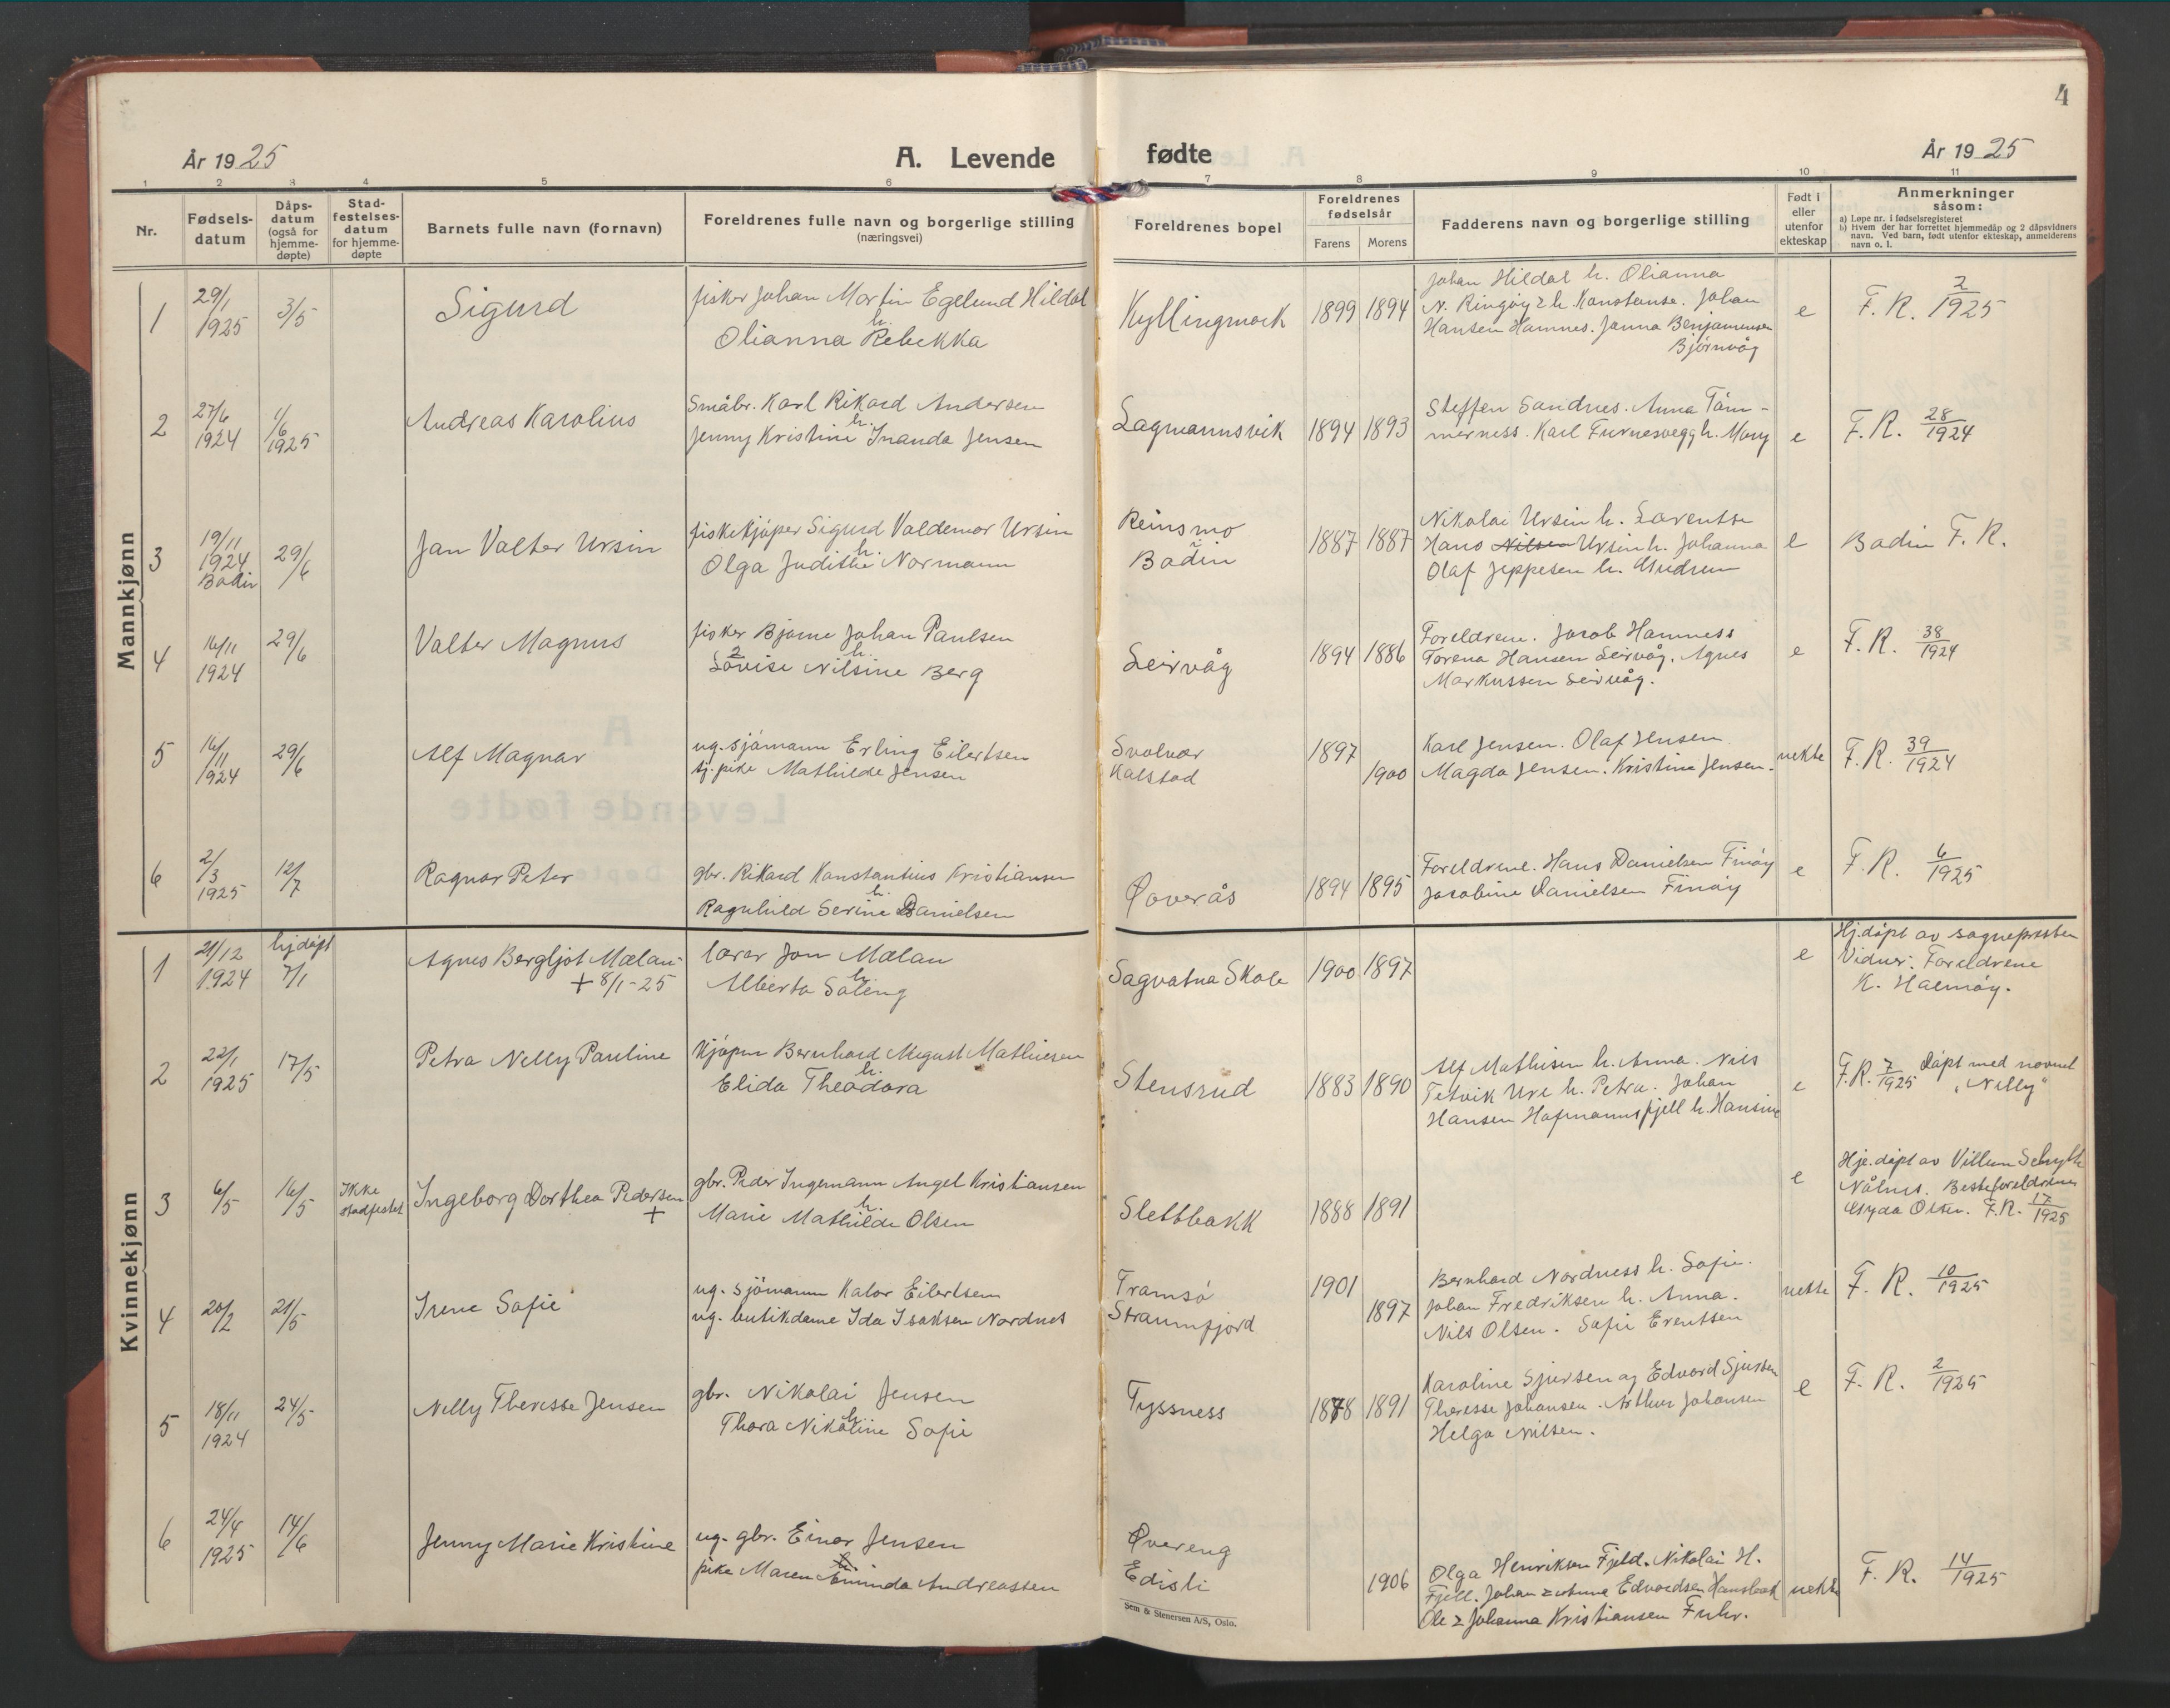 4
År 1925
A. Levende fødte
År 1925
1 2 3 4 5 6 7 8 9 10 11
Nr.
Fødsels-
datum
Dåps-
datum
(også for
hjemme-
døpte)
Stad-
festelses-
datum
for hjemme-
døpte
Barnets fulle navn (fornavn)
Foreldrenes fulle navn og borgerlige stilling
(næringsvei)
Foreldrenes bopel
Foreldrenes
fødselsår
Farens
Morens
Fadderens navn og borgerlige stilling
Født i
eller
utenfor
ekteskap
Anmerkninger
såsom:
a) Løpe nr. i fødselsregisteret
b) Hvem der har forrettet hjemmedåp og 2 dåpsvidners
navn. Ved barn, født utenfor ekteskap, anmelderens
navn o. l.
Mannkjønn
1
29/1
1925
3/5
Sigurd
fisker Johan Martin Egelund Hildal
h.
Olianna Rebekka
Kyllingmark
1899
1894
Johan Hildal h. Olianna
N. Ringøy & h. Konstanse. Johan
Hansen Hamnes. Janna Benjaminsen
Bjørnvåg
e
F. R. 2/1925
2
27/6
1924
1/6
1925
Andreas Karolius
Småbr. Karl Rikard Andersen
h.
Jenny Kristine Inanda Jensen
Lagmannsvik
1894
1893
Steffen Sandnes. Anna Tøm-
merness. Karl Furnesvegg h. Mary
e
F. R. 28/1924
3
19/11
1924
Bodin
29/6
Jan Valter Ursin
fiskekjøper Sigurd Valdemar Ursin
h.
Olga Judithe Normann
Reinsmo
i
Bodin
1887
1887
Nikolai Ursin h. Lorentse
Hans Nilsen Ursin h. Johanna
Olaf Jeppesen h. Gudrun
e
Bodin F. R.
4
16/11
1924
29/6
Valter Magnus
fisker Bjarne Johan Paulsen
2 h.
Lovise Nilsine Berg
Leirvåg
1894
1886
Foreldrene. Jacob Hamness
Torena Hansen Leirvåg. Agnes
Markussen Leirvåg.
e
F. R. 38/1924
5
16/11
1924
29/6
Alf Magnar
ug. sjømann Erling Eilertsen
tj. pike Mathilde Jensen
Svolvær
Kalstad
1897
1900
Karl Jensen. Olaf Jensen
Magda Jensen. Kristine Jensen.
uekte
F. R. 39/1924
6
2/3
1925
12/7
Ragnar Peter
gbr. Rikard Konstantius Kristiansen
h.
Ragnhild Serine Danielsen
Øverås
1894
1895
Foreldrene. Hans Danielsen Finøy
Jacobine Danielsen Finøy
e
F. R. 6/1925
Kvinnekjønn
1
21/12
1924
hj.døpt
7/1
Agnes Bergljot Mælan
+ 8/1-25
lærer Jon Mælan
h.
Alberta Sæteng
Sagvatna Skole
1900
1897
e
Hj.døpt av sognepresten
Vidner: Foreldrene
K. Halmøy.
2
22/1
1925
17/5
Petra Nelly Pauline
Kjøpm. Bernhard August Mathiesen
h.
Elida Theodora
Stensrud
1883
1890
Alf Mathisen h. Anna. Nils
Tetvik Ure h. Petra. Johan
Hansen Hofmannsfjell h. Hansine
e
F. R. 7/1925 Døpt med navnet
"Nelly"
3
6/5
16/5
Ikke
stadfestet
Ingeborg Dorthea Pedersen
+
gbr. Peder Ingemann Angel Kristiansen
h.
Marie Mathilde Olsen
Slettbakk
1888
1891
e
Hje.døpt av Villum Schytte
Nålnes. Besteforeldrene
Gyda Olsen. F. R. 17/1925
4
20/2
21/5
Irene Sofie
ug. sjømann Kalor Eilertsen
ug. butikdame Ida Isaksen Nordnes
Tromsø
Straumfjord
1901
1897
Bernhard Nordness h. Sofie.
Johan Fredriksen h. Anna.
Nils Olsen. Sofie Evertsen
uekte
F. R. 10/1925
5
18/11
1924
24/5
Nelly Theresse Jensen
gbr. Nikolai Jensen
h.
Thora Nikoline Sofie
Tyssness
1878
1891
Karoline Sjursen og Edvard Sjursen
Theresse Johansen. Arthur Johansen
Helga Nilsen.
e
F. R. 2/1925
6
24/4
1925
14/6
Jenny Marie Kristine
ug. gbr. Einar Jensen
h.
pike Maren Aminda Andreassen
Øvereng
Edisli
1906
Olga Henriksen Fjeld. Nikolai H.
Fjell. Johan & Anna Edvardsen Hansbakk
Ole & Johanna Kristiansen Fuhr.
uekte
F. R. 14/1925
Sem & Stenersen A/S, Oslo.